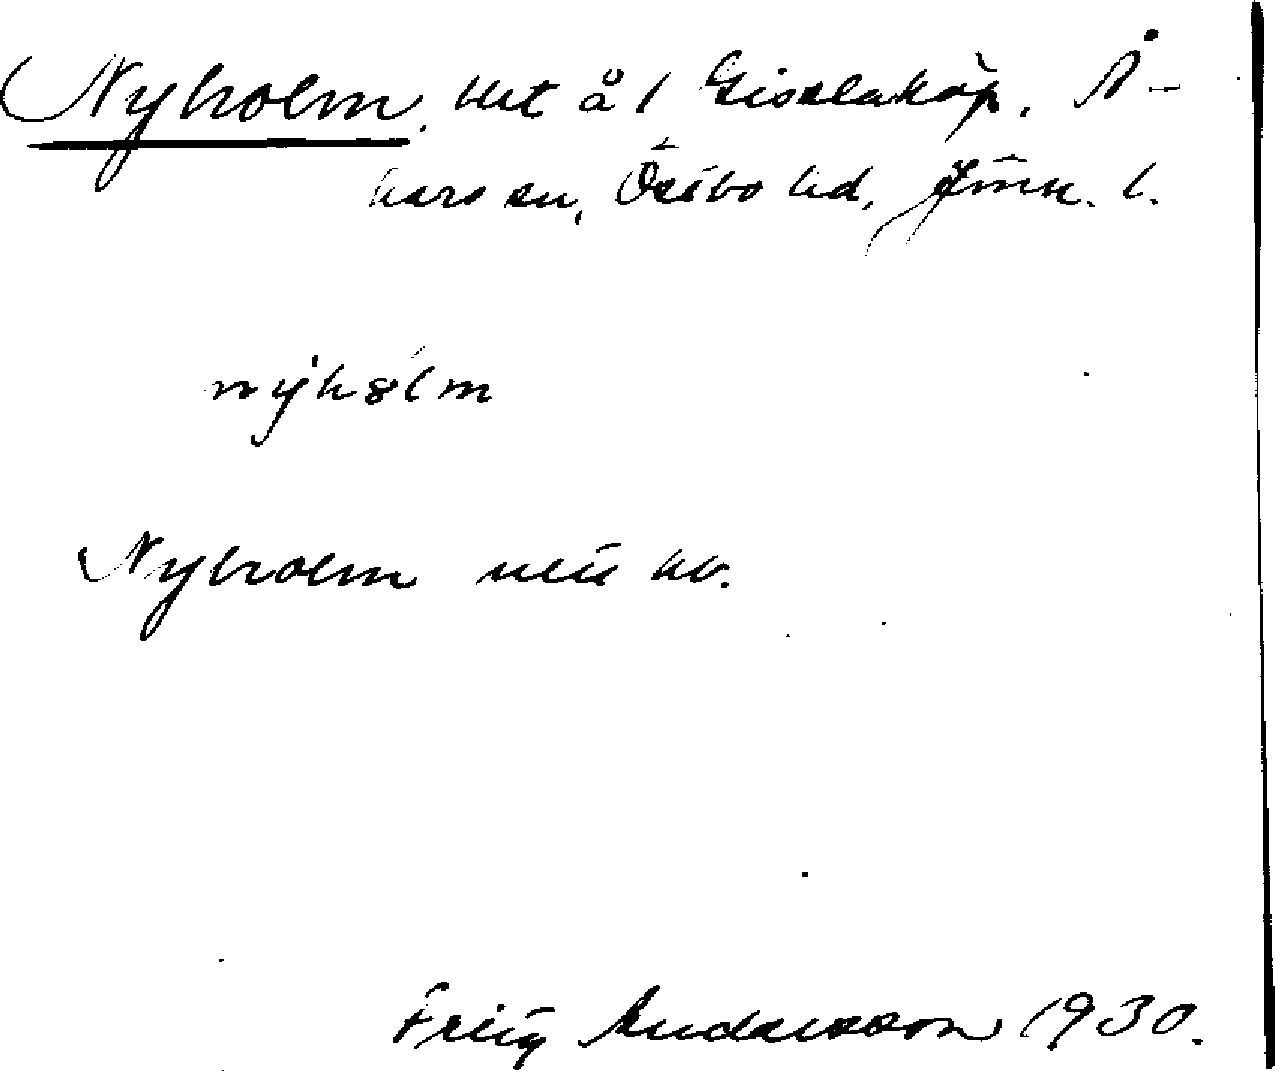 Nyholm, hlt å 1 Gisslaköp, Å-
kers sn, Östbo hd, Jönk. l.
nýhólm
Nyholm
Fritz Andersson 1930.